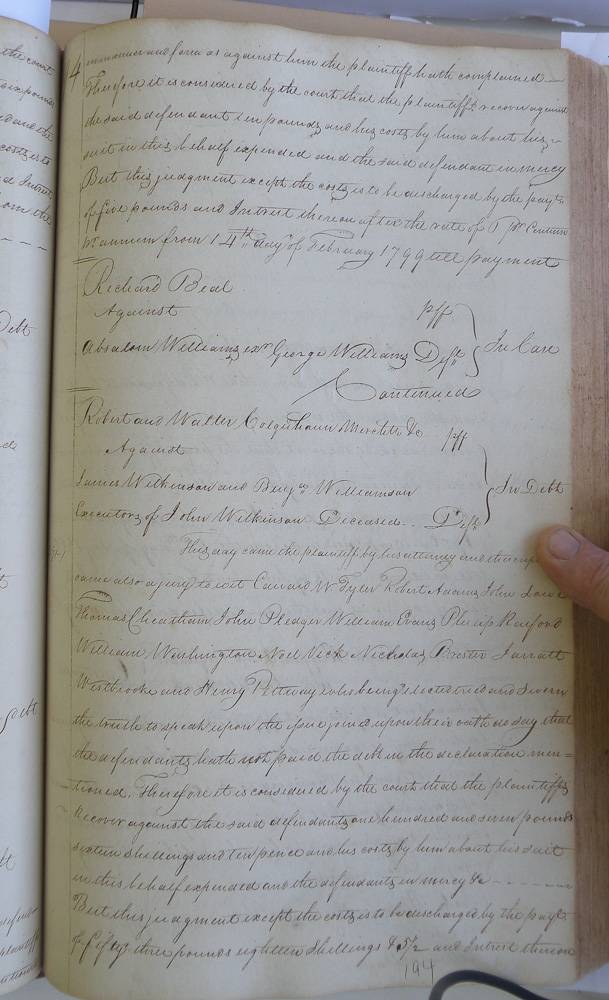 4 manner and form as against him the plaintiff hath complained —
Therefore it is considered by the court that the plaintiffs recover against
the said defendant ten pounds and his costs by him about his
suit in this behalf expended and the said defendant in mercy
But this judgment except the costs is to be discharged by the paymt
of five pounds and Interest thereon after the rate of 5 pr Centum
pr annum from 14th day of February 1799 till payment
Richard Beal
Against
pff
Absalom Williams exr George Williams Deft
In Case
Continued
Robert and Walter Colquhoun Merchts &c pff
Against
James Wilkinson and Benja Williamson
In Debt
Executors of John Wilkinson Deceased .. Defts
This day came the plaintiff by his attorney and thereupon
came also a jury to wit Edward W. Tyler Robert Adams John
Thomas Cheatham John Pledger William Evans Philip Raiford
William Washington Noel Vick Nicholas Jarratt
Westbrooke and Henry Pettway who being elected tried and Sworn
the truth to speak upon the issue joined upon their oath do say that
the defendants hath not paid the debt in the declaration men=
tioned. Therefore it is considered by the court that the plaintiffs
Recover against the said defendants one hundred and seven pounds
sixteen shillings and ten pence and his costs by him about his suit
in this behalf expended and the defendants in mercy &c - - - - - -
But this judgment except the costs is to be discharged by the paymt
of fifty three pounds eighteen Shillings & 5/2 and Interest thereon
194